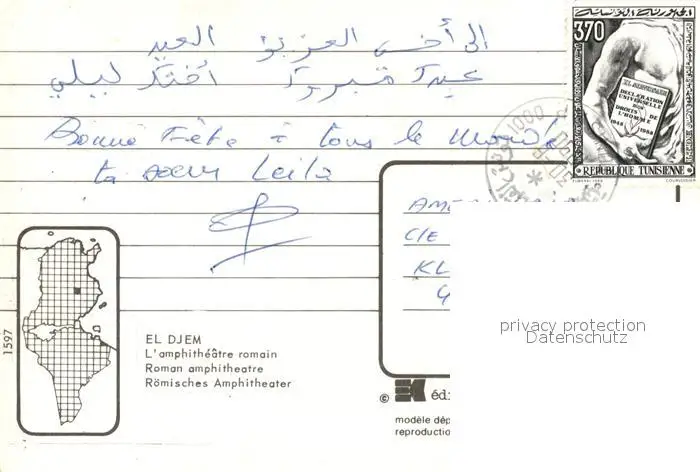 إلى أخي العزيز العيد
عيدك مبروك أختك ليلى
Bonne Fête à tous le monde
ta soeur Leila
AM
C/E
KL
الجمهورية التونسية
370
XL ANNIVERSAIRE
DECLARATION
UNIVERSELLE
DES
DROITS DE
L'HOMME
1948 1988
REPUBLIQUE TUNISIENNE
1000
1597
EL DJEM
L'amphithéâtre romain
Roman amphitheatre
Römisches Amphitheater
© édi
modèle dép
reproductio
privacy protection
Datenschutz